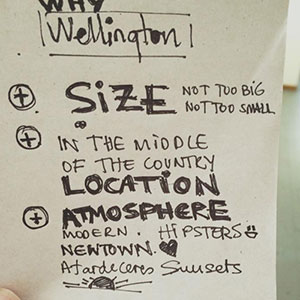 WHY
Wellington
SIZE NOT TOO BIG
NOT TOO SMALL
IN THE MIDDLE
OF THE COUNTRY
LOCATION
ATMOSPHERE
MODERN. HIPSTERS
NEWTOWN.
Atardeceres Sunsets